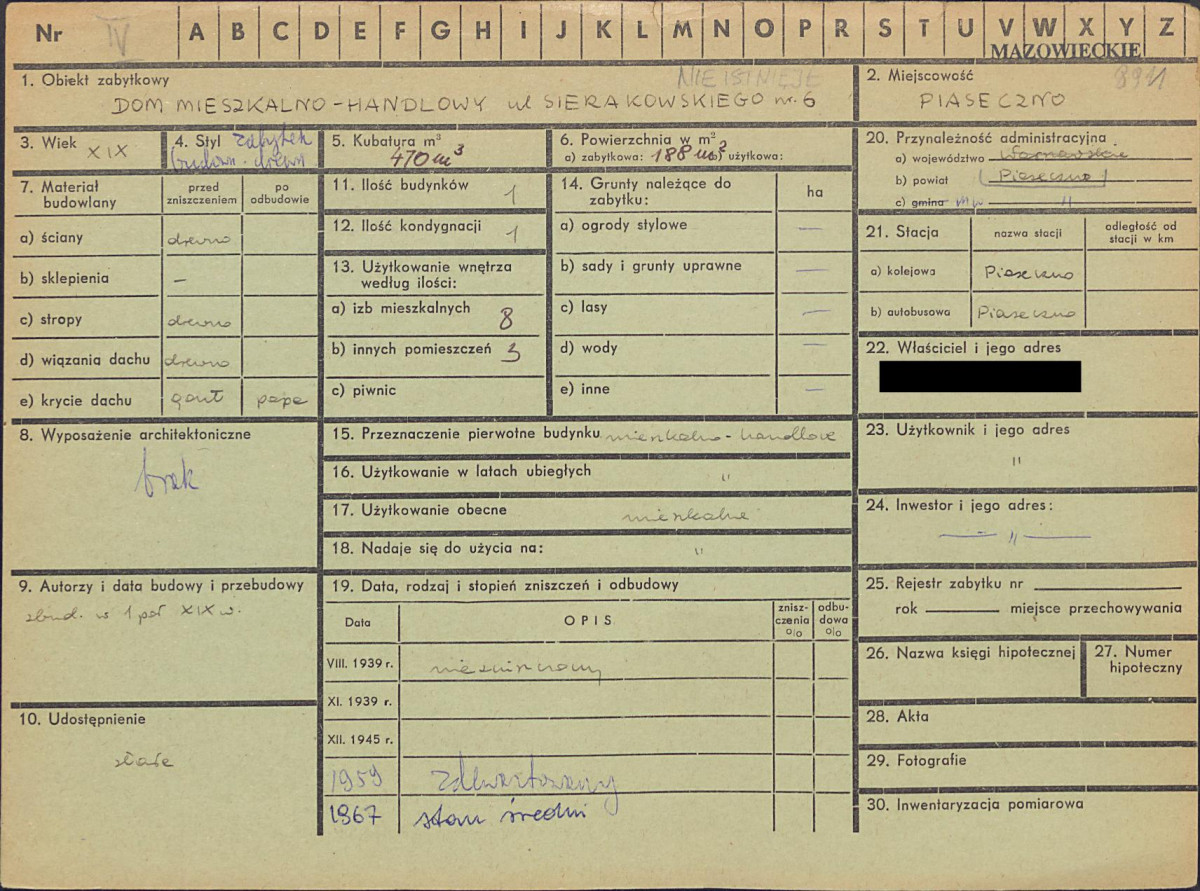 Nr IV A B C D E F G H I J K L M N O P R S T U V W X Y Z
MAZOWIECKIE
1. Obiekt zabytkowy NIE ISTNIEJE
DOM MIESZKALNO-HANDLOWY ul SIERAKOWSKIEGO nr. 6
2. Miejscowość
PIASECZNO
3. Wiek XIX
4. Styl zabytek
budown. drewn
5. Kubatura m³
470 m³
6. Powierzchnia w m²
a) zabytkowa: 188 m² b) użytkowa:
20. Przynależność administracyjna
a) województwo Warszawskie
b) powiat (Piaseczno)
c) gmina "
7. Materiał budowlany
przed zniszczeniem
po odbudowie
a) ściany drewno
b) sklepienia –
c) stropy drewno
d) wiązania dachu drewno
e) krycie dachu gont papa
11. Ilość budynków 1
12. Ilość kondygnacji 1
13. Użytkowanie wnętrza
według ilości:
a) izb mieszkalnych 8
b) innych pomieszczeń 3
c) piwnic
14. Grunty należące do
zabytku:
ha
a) ogrody stylowe —
b) sady i grunty uprawne —
c) lasy —
d) wody —
e) inne —
21. Stacja
nazwa stacji
odległość od
stacji w km
a) kolejowa Piaseczno
b) autobusowa Piaseczno
22. Właściciel i jego adres
8. Wyposażenie architektoniczne
brak
15. Przeznaczenie pierwotne budynku mieszkalno-handlowe
16. Użytkowanie w latach ubiegłych "
17. Użytkowanie obecne mieszkalne
18. Nadaje się do użycia na: "
23. Użytkownik i jego adres
"
24. Inwestor i jego adres:
— " —
9. Autorzy i data budowy i przebudowy
zbud. w 1 poł XIX w.
19. Data, rodzaj i stopień zniszczeń i odbudowy
Data
OPIS
znisz-
czenia
%
odbu-
dowa
%
VIII. 1939 r. niezniszczony
XI. 1939 r.
XII. 1945 r.
1959 zdewastowany
1967 stan średni
25. Rejestr zabytku nr
rok miejsce przechowywania
26. Nazwa księgi hipotecznej
27. Numer
hipoteczny
10. Udostępnienie
stałe
28. Akta
29. Fotografie
30. Inwentaryzacja pomiarowa